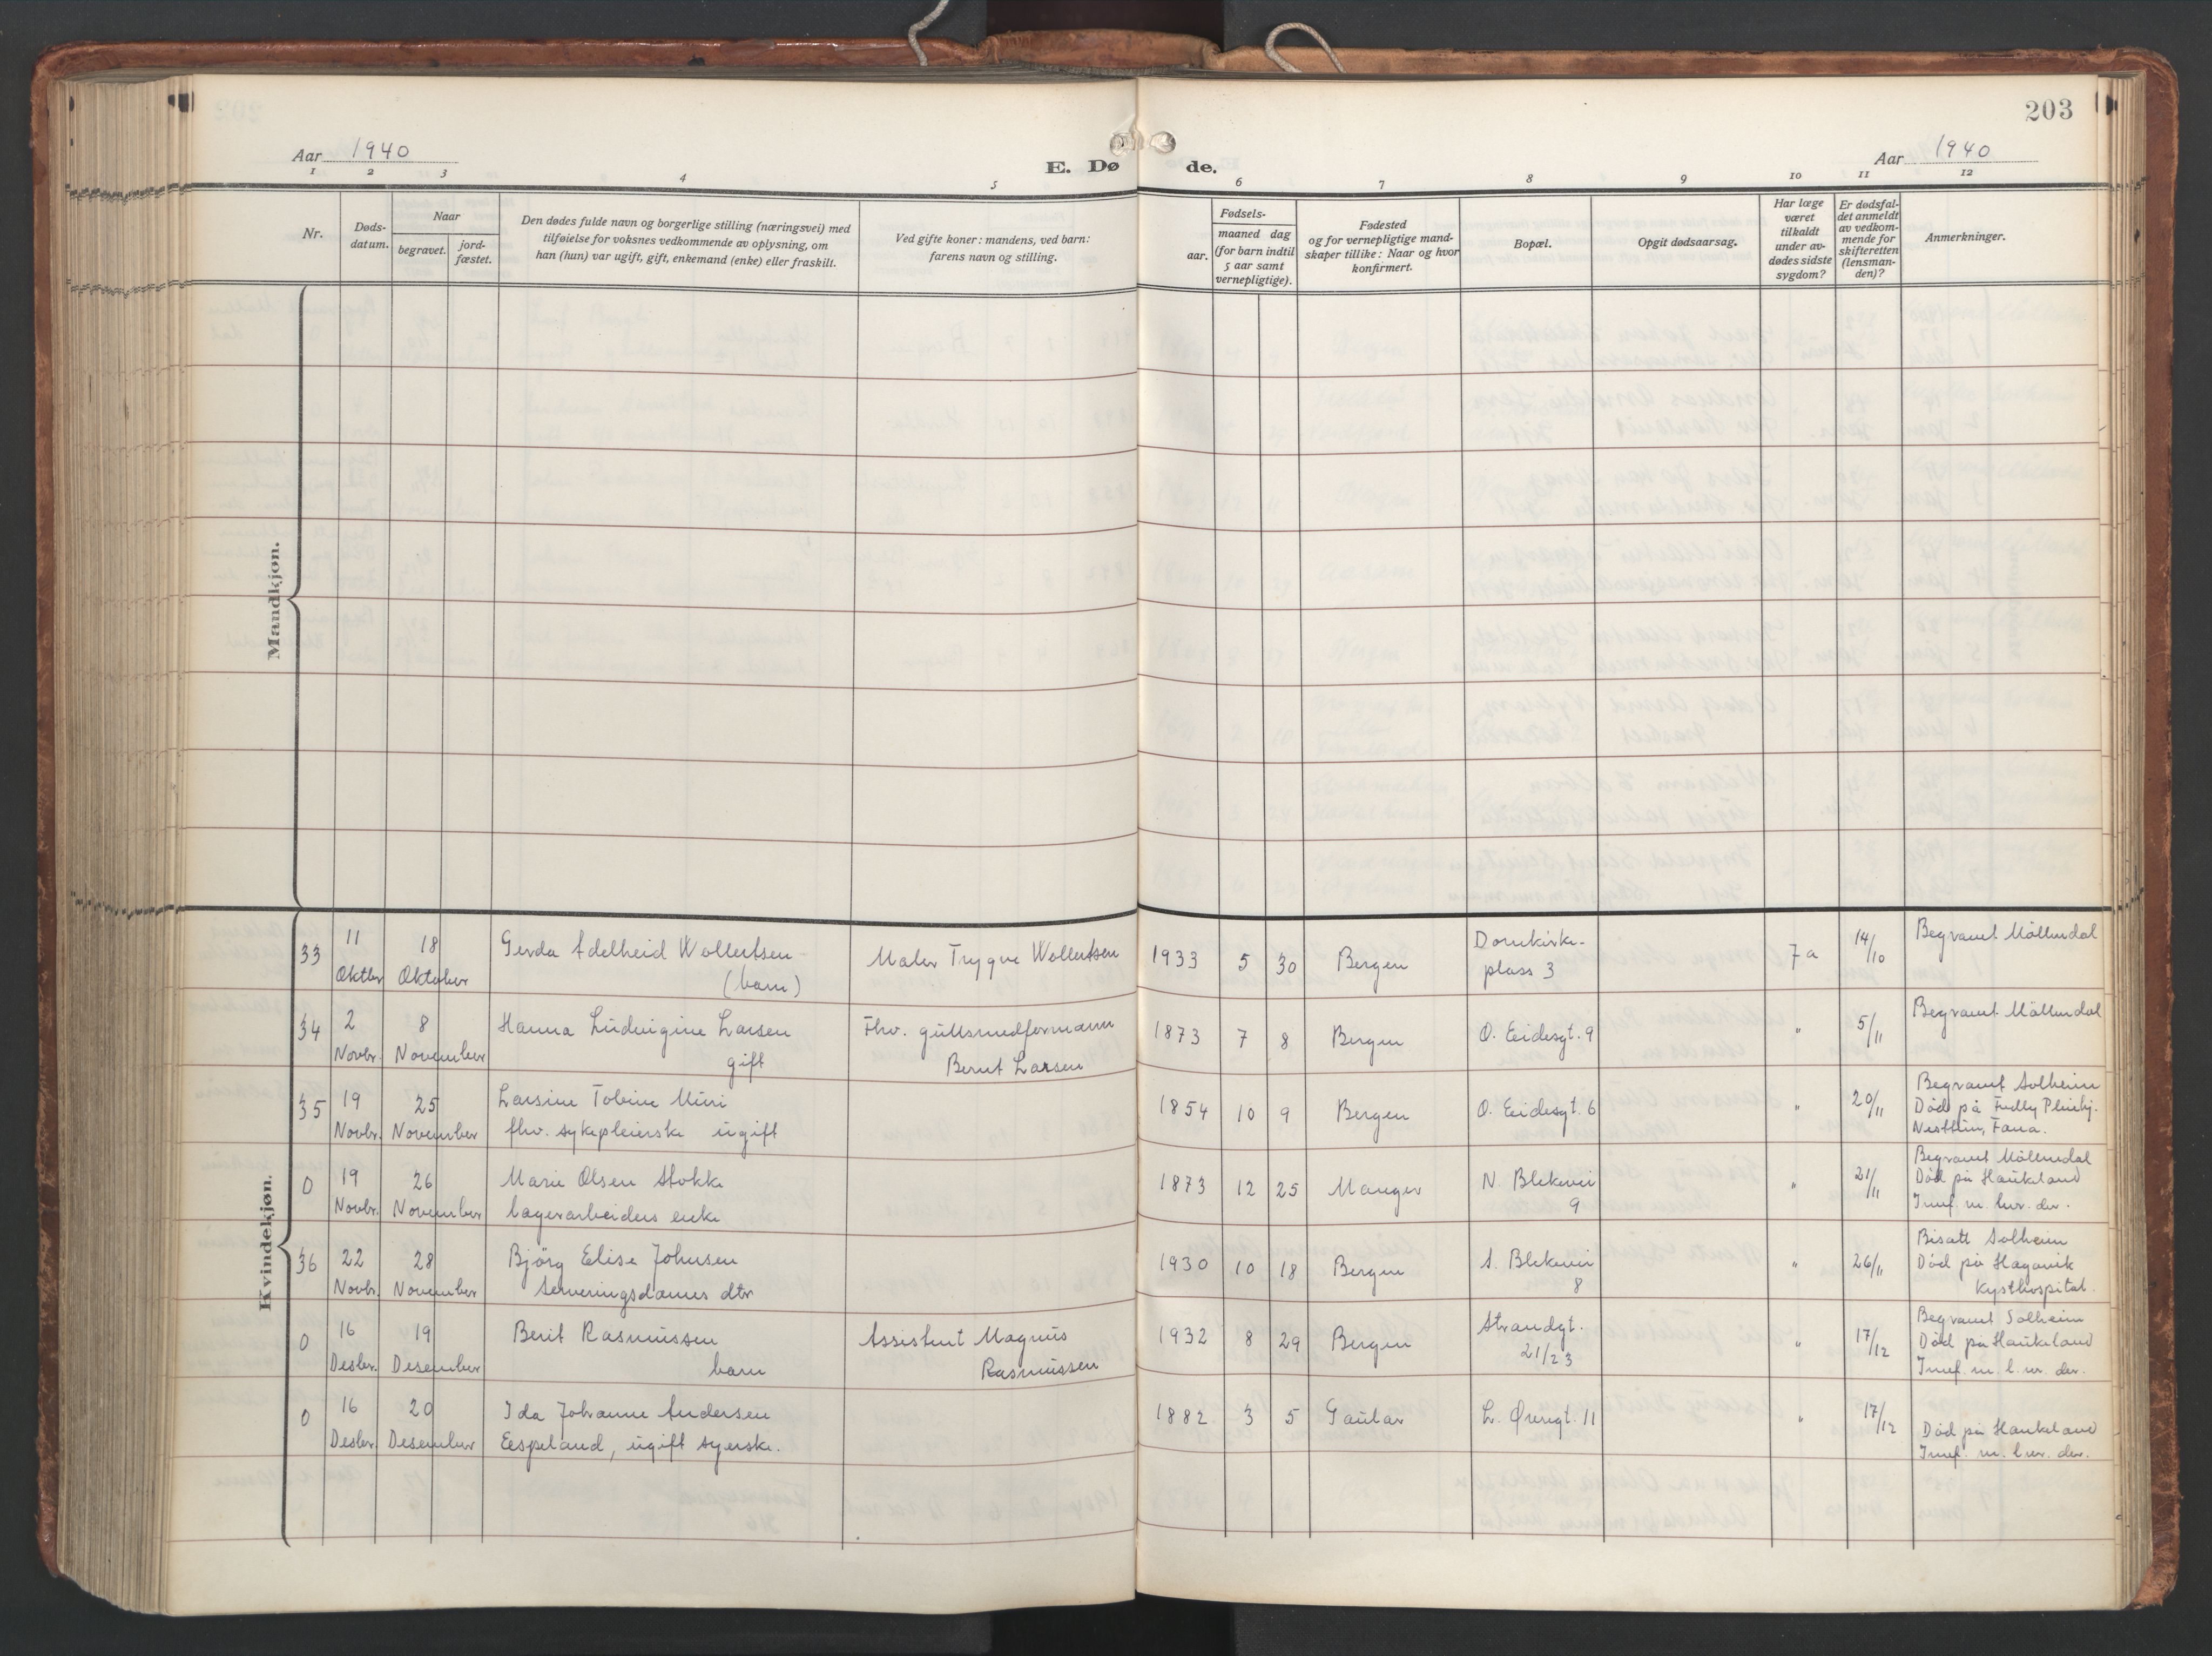 203
Aar 1940
E. Døde.
Aar 1940
1 2 3 4 5 6 7 8 9 10 11 12
Nr.
Døds-
datum.
Naar
begravet.
jord-
fæstet.
Den dødes fulde navn og borgerlige stilling (næringsvei) med
tilføielse for voksnes vedkommende av oplysning, om
han (hun) var ugift, gift, enkemand (enke) eller fraskilt.
Ved gifte koner: mandens, ved barn:
farens navn og stilling.
Fødsels-
aar.
maaned dag
(for barn indtil
5 aar samt
vernepligtige).
Fødested
og for vernepligtige mand-
skaper tillike: Naar og hvor
konfirmert.
Bopæl.
Opgit dødsaarsag.
Har læge
været
tilkaldt
under av-
dødes sidste
sygdom?
Er dødsfal-
det anmeldt
av vedkom-
mende for
skifteretten
(lensman-
den)?
Anmerkninger.
Mandkjøn.
Kvindekjøn.
33
11
Oktbr
18
Oktober
Gerda Adelheid Wollertsen
(barn)
Maler Trygve Wollertsen
1933 5 30
Bergen
Domkirke-
plass 3
Ja
14/10
Begravet Möllendal
34
2
Novbr.
8
November
Hanna Ludvigine Larsen
gift
Fhv. gullsmedformann
Bernt Larsen
1873 7 8
Bergen
O. Eidesgt. 9
"
5/11
Begravet Möllendal
35
19
Novbr.
25
November
Larsine Tobine Muri
fhv. sykepleierske ugift
1854 10 9
Bergen
O. Eidesgt. 6
"
20/11
Begravet Solheim
Död på Pleiehj.
Nesttun, Fana.
0
19
Novbr.
26
November
Marie Olsen Stokke
lagerarbeiders enke
1873 12 25
Manger
N. Blekevei
9
"
21/11
Begravet Möllendal
Död på Haukeland
Innf. m. lnr. der.
36
22
Novbr.
28
November
Bjørg Elise Johnsen
Serveringsdames dtr
1930 10 18
Bergen
S. Blekevei
8
"
26/11
Bisatt Solheim
Död på Hagavik
Kysthospital.
0
16
Desbr.
19
Desember
Berit Rasmussen
barn
Assistent Magnus
Rasmussen
1932 8 29
Bergen
Strandgt.
21/23
"
17/12
Begravet Solheim
Död på Haukeland
Innf. m. l. nr. der.
0
16
Desbr.
20
Desember
Ida Johanne Andersen
Espeland, ugift syerske.
1882 3 5
Gaular
L. Øvregt. 11
"
17/12
Död på Haukeland
Innf. m. l. nr. der.